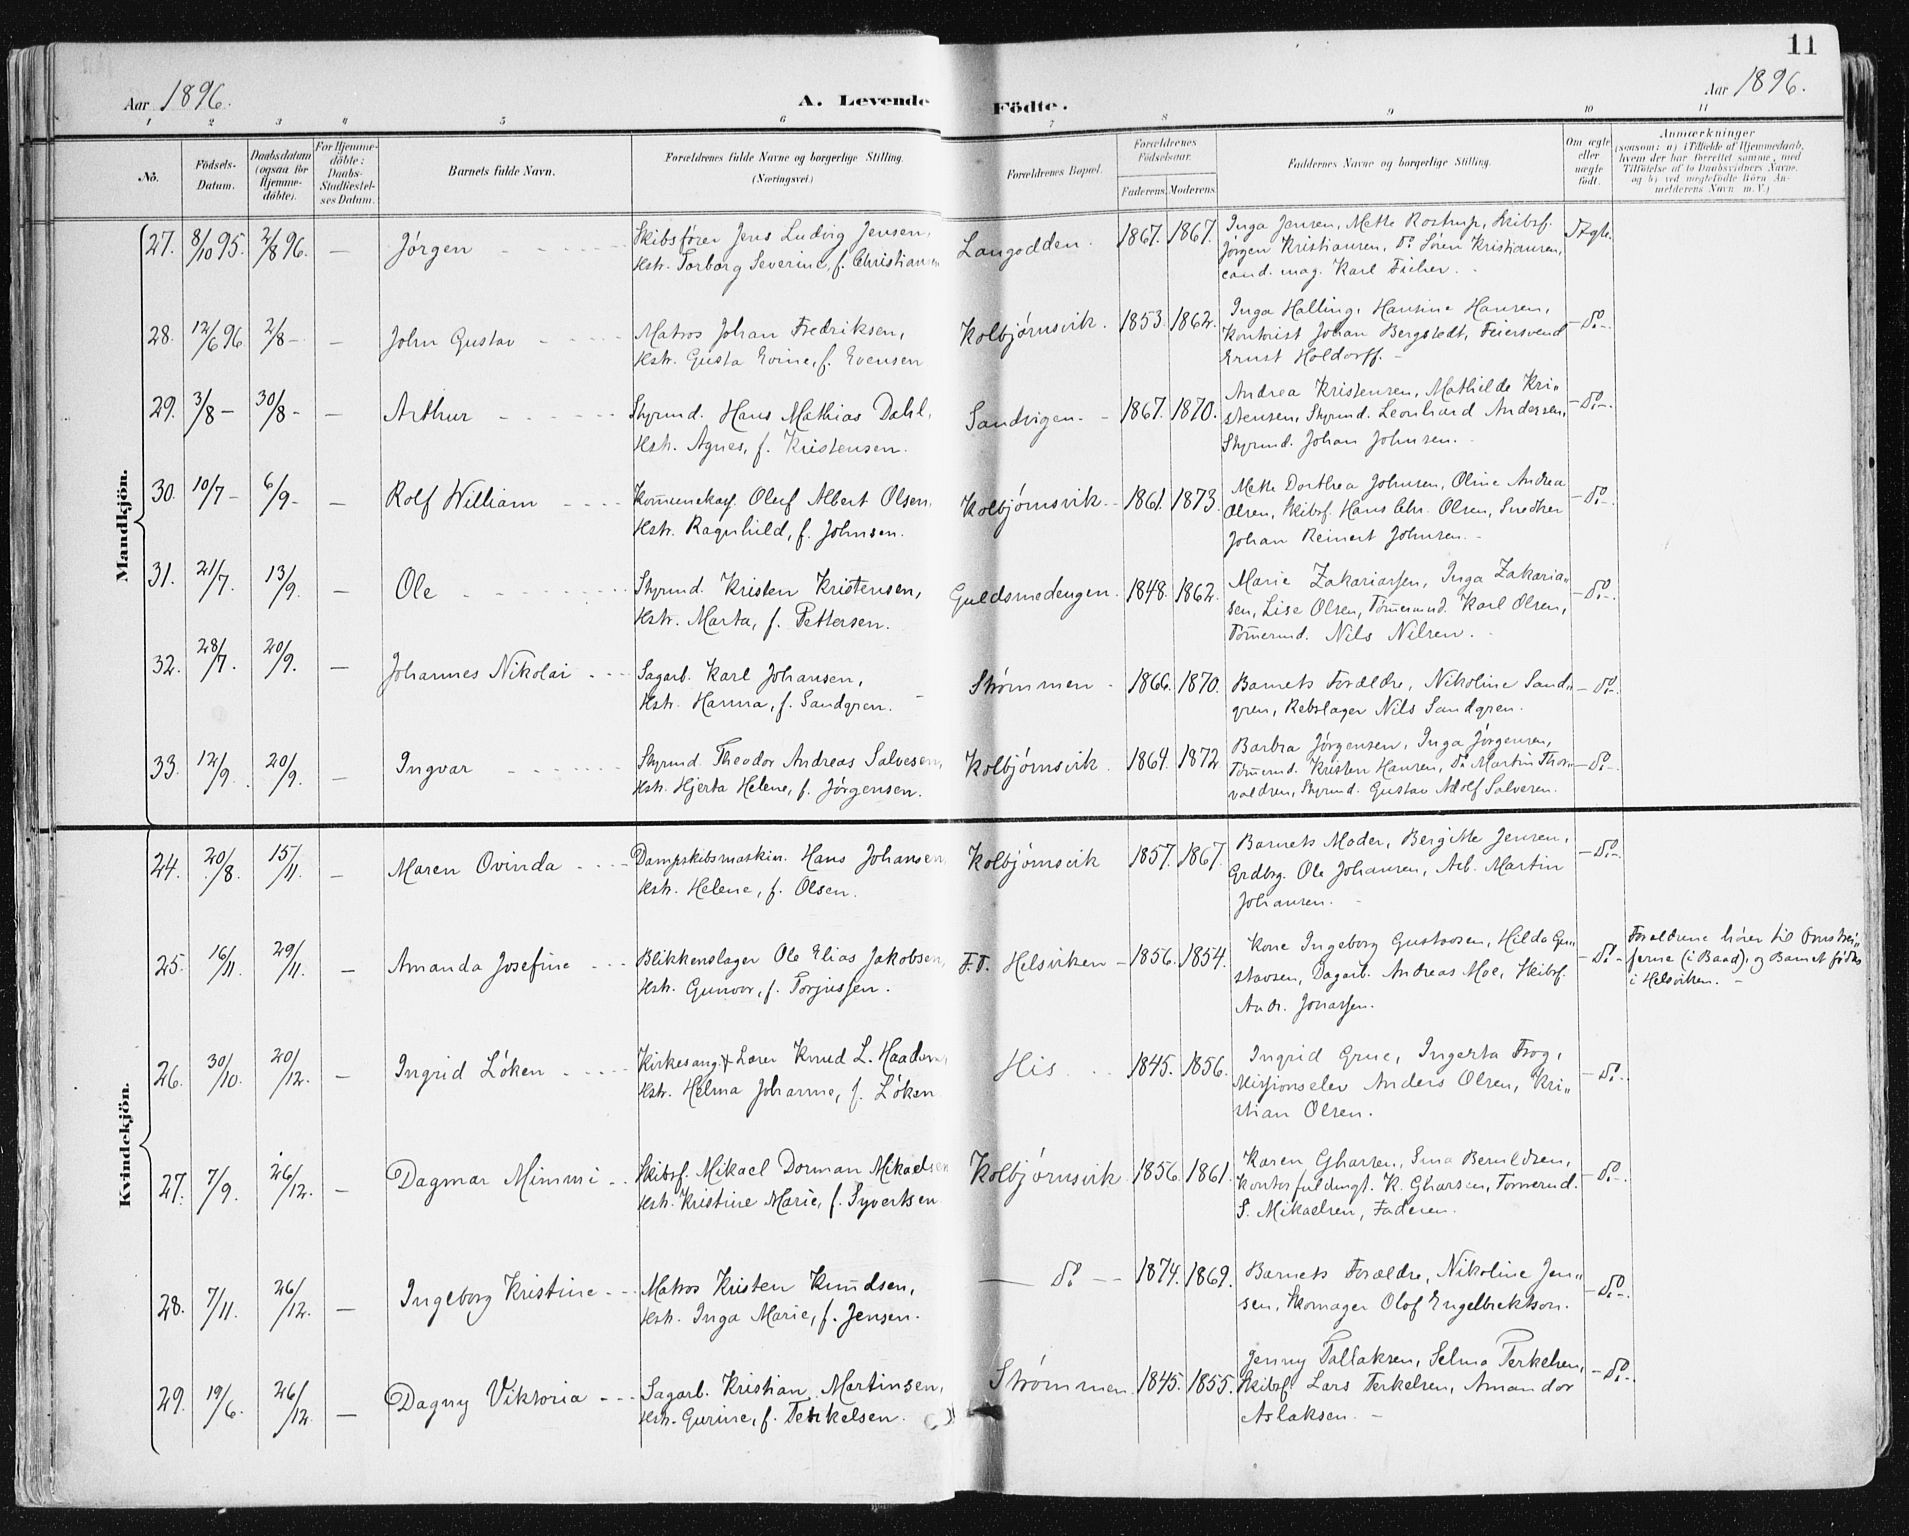 11
Aar 1896. A. Levende Födte. Aar 1896.
1 2 3 4 5 6 7 8 9 10 11
No.
Födsels-
Datum.
Daabsdatum
(ogsaa for
Hjemme-
döbte).
For Hjemme-
döbte:
Daabs-
Stadfæstel-
ses Datum.
Barnets fulde Navn.
Forældrenes fulde Navne og borgerlige Stilling.
(Næringsvei)
Forældrenes Bopæl.
Forældrenes
Födselsaar.
Faderens. Moderens.
Faddernes Navne og borgerlige Stilling.
Om ægte
eller
uægte
födt.
Anmærkninger
(saasom: a) i Tilfælde af Hjemmedaab,
hvem der har forrettet samme, med
Tilföielse af to Daabsvidners Navne,
og b) ved uegtefödte Börn An-
melderens Navn m. V.)
Mandkjön.
27. 8/10 95. 2/8 96. — Jørgen
Skibsfører Jens Ludvig Jensen,
Hstr. Torborg Severine, f. Christiansen
Langodden. 1867. 1867.
Inga Jensen, Mette Rostrup, Skibsf.
Jørgen Kristiansen, do Søren Kristiansen,
cand. mag. Karl
Ægte.
28. 12/6 96 2/8 — — John Gustav
Matros Johan Fredriksen,
Hstr. Gusta Evine, f. Evensen
Kolbjørnsvik. 1853. 1862.
Inga Halling, Hansine Hansen,
Kontorist Johan Bergstedt, Feiersvend
Ernst Holdorff. —
— do —
29. 3/8 — 30/8 — — Arthur
Styrmd. Hans Mathias Dahl,
Hstr. Agnes, f. Kristensen.
Sandvigen. — 1867. 1870.
Andrea Kristensen, Mathilde Kri-
stensen, Styrmd. Leonhard Andersen,
Styrmd. Johan Johnsen.
— do —
30. 10/7 — 6/9 — — Rolf William
Olaf Albert Olsen,
Hstr. Ragnhild, f. Johnsen.
Kolbjørnsvik. — 1861. 1873.
Mette Dorthea Johnsen, Oline Andrea
Olsen, Skibsf. Hans Chr. Olsen, Snedker
Johan Reinert Johnsen.
— do —
31. 21/7. 13/9. — Ole
Styrmd. Kristen Kristensen,
Hstr. Marta, f. Pettersen.
Guldsmedengen. 1848. 1862.
Marie Zakariassen, Inga Zakaria-
sen, Lise Olsen, Tømermd. Karl Olsen,
Tømermd. Nils Nilsen.
— do —
32. 28/7. 20/9. — Johannes Nikolai
Sagarb. Karl Johansen,
Hstr. Hanna, f. Sandgren. —
Strømmen — 1866. 1870.
Barnets Forældre, Nikoline Sand-
gren, Rebslager Nils Sandgren.
— do —
33. 12/9. 20/9. — Ingvar
Styrmd. Theodor Andreas Salvesen,
Hstr. Hjerta Helene, f. Jørgensen.
Kolbjørnsvik. 1864. 1872
Barbra Jørgensen, Inga Jørgensen,
Tømermd. Kristen Hansen, do Martin Thor-
valdsen, Styrmd. Gustav Adolf Salvesen.
— do —
Kvindekjön.
24. 20/8. 15/11. — Maren Ovinda
Dampskibsmaskin. Hans Johansen,
Hstr. Helene, f. Olsen.
Kolbjørnsvik 1857. 1867.
Barnets Moder, Bergitte Jensen,
Grdbrg. Ole Johansen, Arb. Martin
Johansen. —
— do —
25. 16/11. 29/11. — Amanda Josefine
Blikkenslager Ole Elias Jakobsen,
Hstr. Gunvor, f. Torjussen.
F.T. Helsviken — 1856. 1854.
Kone Ingeborg Gustavsen, Hilda Gu-
stavsen, Dagarb. Andreas Moe, Skibsf.
Andr. Jonassen.
— do —
Forældrene hører til Omstrei-
ferne (i Baad), og Barnet fødtes
i Helsviken. —
26. 30/10. 20/12. — Ingrid Løken
Kirkesang. & Lærer Knud L.
Hstr. Helma Johanne, f. Løken
His. 1845. 1856.
Ingrid Grue, Ingerta Frog,
Missionselev Anders Olsen, Kri-
stian Olsen.
— do —
27. 7/9. 26/12. — Dagmar Mimmi
Skibsf. Mikael Dorman Mikaelsen
Hstr. Kristine Marie, f. Syvertsen
Kolbjørnsvik 1856. 1861.
Karen Gharsen, Sina Berntsen,
Kontorfuldmgt. K. Gharsen, Tømermd.
S. Mikaelsen, Faderen.
— do —
28. 7/11. 26/12. — Ingeborg Kristine
Matros Kristen Knudsen,
Hstr. Inga Marie, f. Jensen.
— do — 1874. 1869.
Barnets Forældre, Nikoline Jen-
sen, Skomager Olof Engelbrektson.
— do —
29. 19/6. 26/12. — Dagny Viktoria
Sagarb. Kristian Martinsen,
Hstr. Gurine, f. Terkelsen.
Strømmen. 1845. 1855.
Jenny Tallaksen, Selma Terkelsen,
Skibsf. Lars Terkelsen, Amandor
Aslaksen. —
— do —